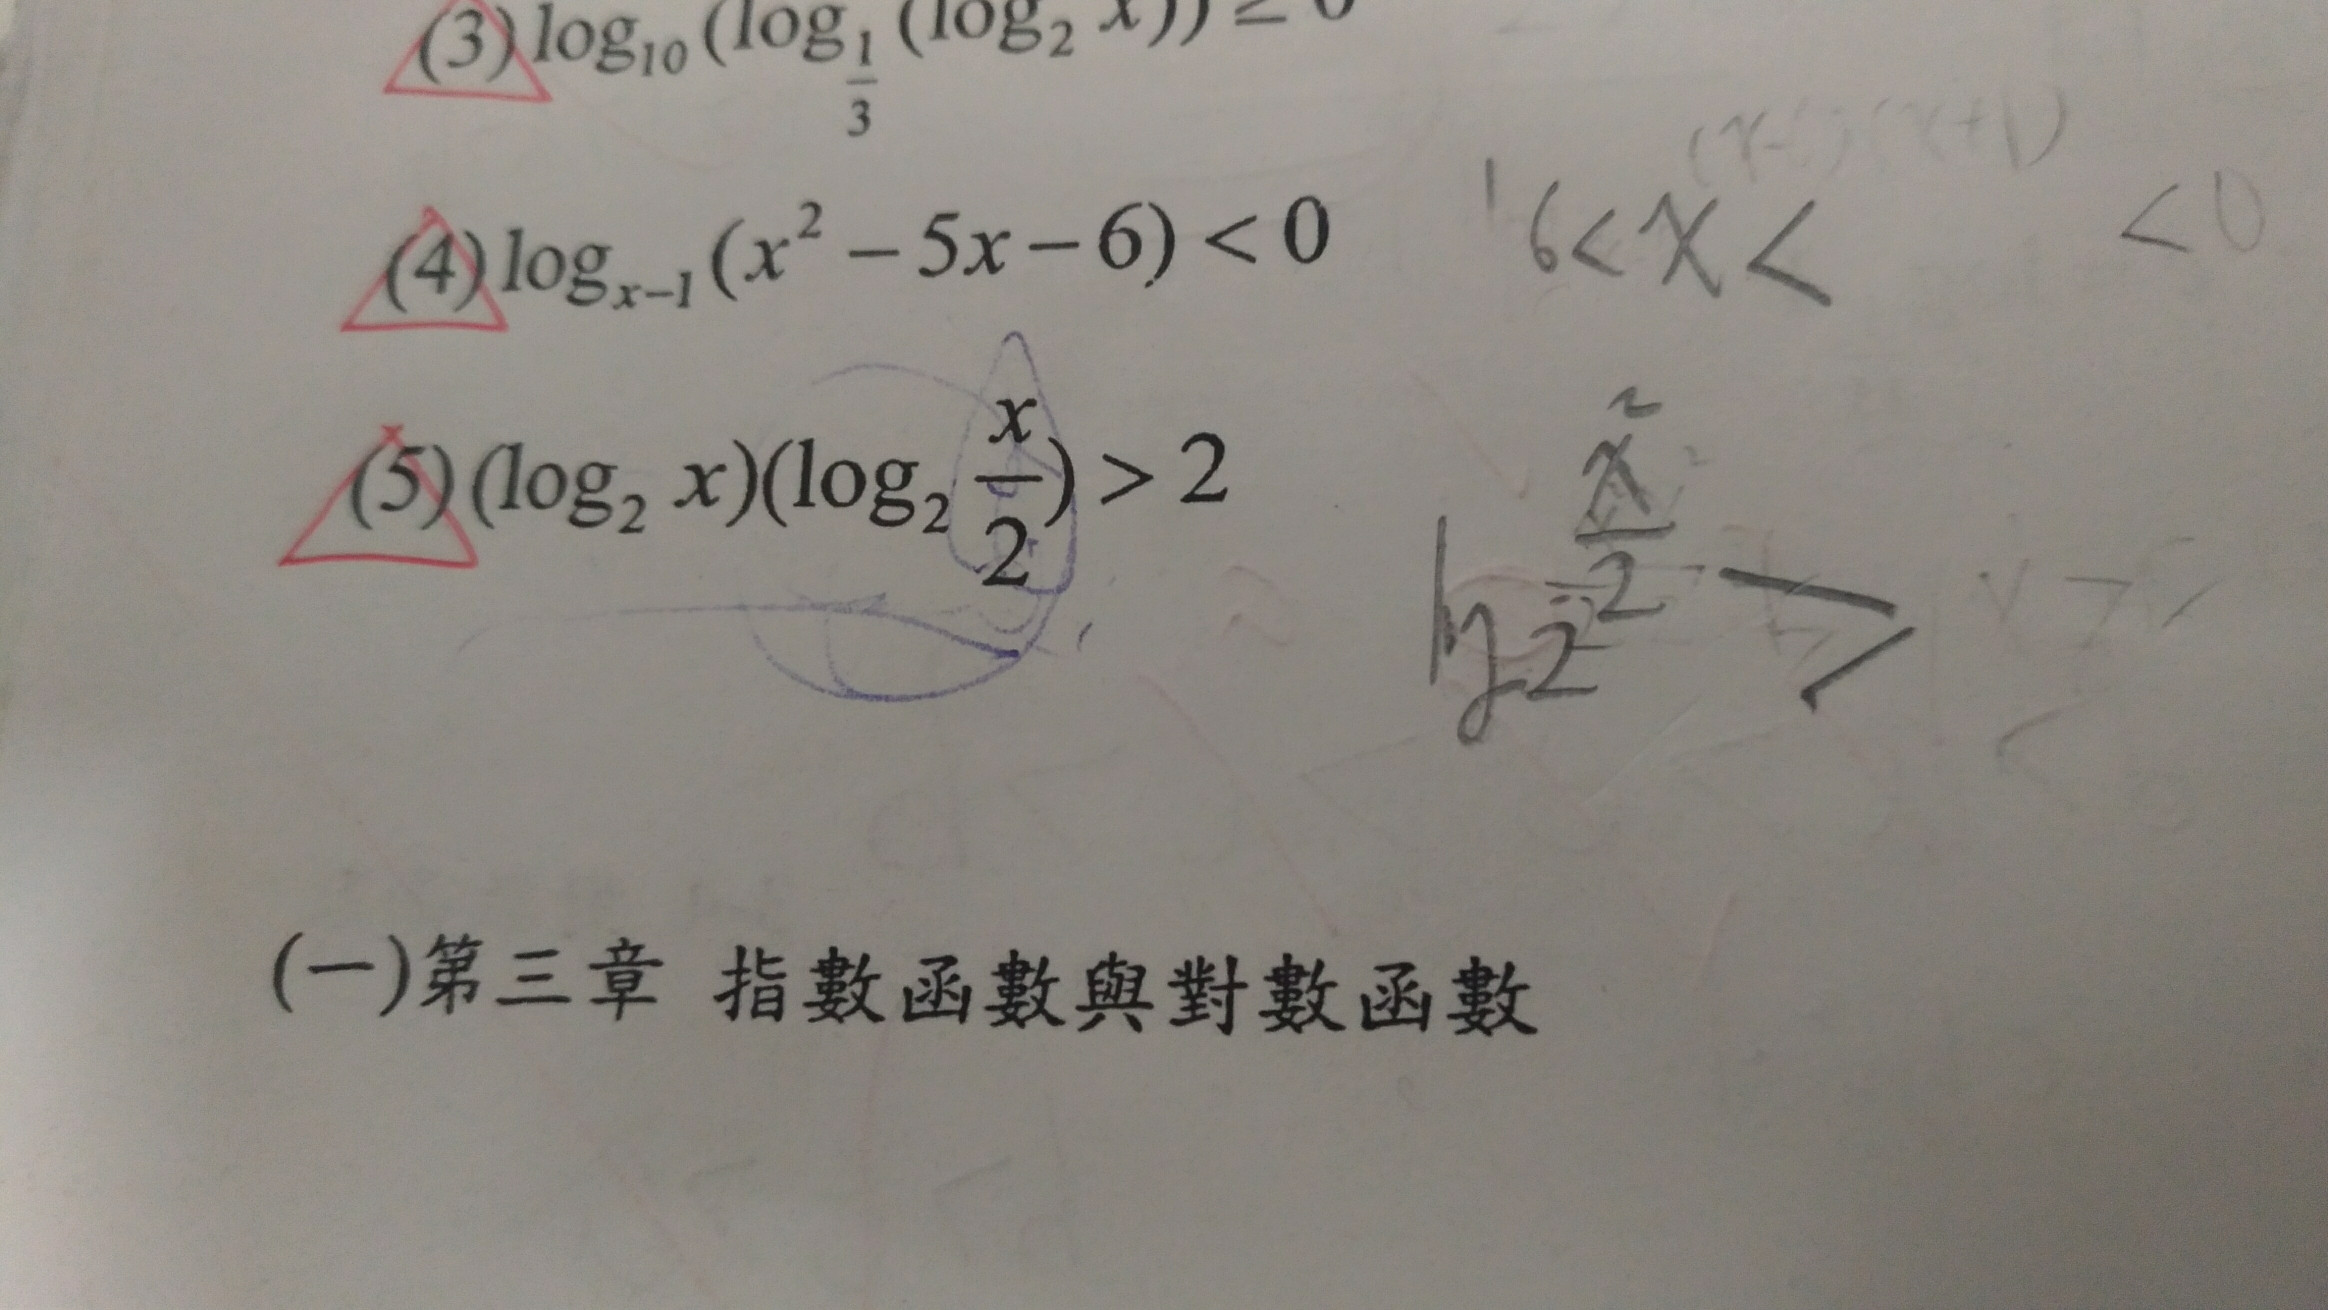 (3) log₁₀(log_{1/3}(log₂ x)) ≥ 0
(4) logₓ₋₁(x² − 5x − 6) < 0
6 < x <
< 0
(5) (log₂ x)(log₂ x/2) > 2
(一)第三章 指數函數與對數函數